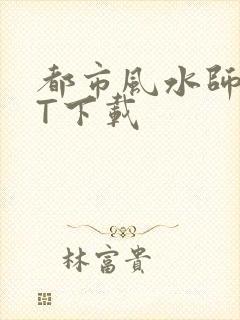 都市風水師
T下載
林富貴